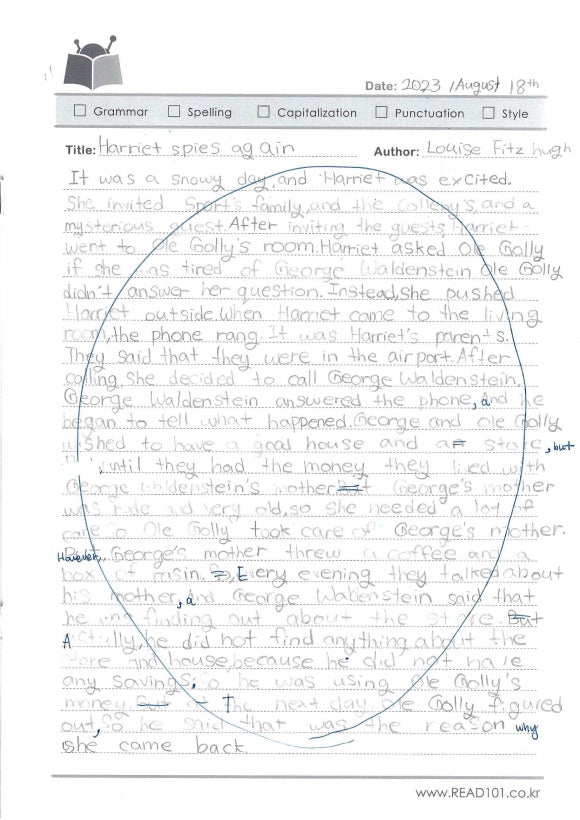 Date: 2023 / August 18th
Grammar Spelling Capitalization Punctuation Style
Title: Harriet spies again Author: Louise Fitz hugh
It was a snowy day, and Harriet was excited.
She invited Sport's family, and the and a
mysterious guest. After inviting the guests, Harriet
went to Ole Golly's room. Harriet asked Ole Golly
if she was tired of George Waldenstein. Ole Golly
didn't answer her question. Instead, she pushed
Harriet outside. When Harriet came to the living
room, the phone rang. It was Harriet's parents.
They said that they were in the airport. After
calling, She decided to call George Waldenstein.
George Waldenstein answered the phone, and he
began to tell what happened. George and Ole Golly
wished to have a goal house and a store, but
until they had the money they lived with
George Waldenstein's mother. But George's mother
was rude and very old, so she needed a lot of
care. So Ole Golly took care of George's mother.
However, George's mother threw a coffee and a
box of raisin. So, Every evening they talked about
his mother, and George Waldenstein said that
he was finding out about the store. But
Actually, he did not find anything about the
store and house, because he did not have
any savings, so he was using Ole Golly's
money. The next day, Ole Golly figured
out, so he said that was the reason why
she came back.
www.READ101.co.kr